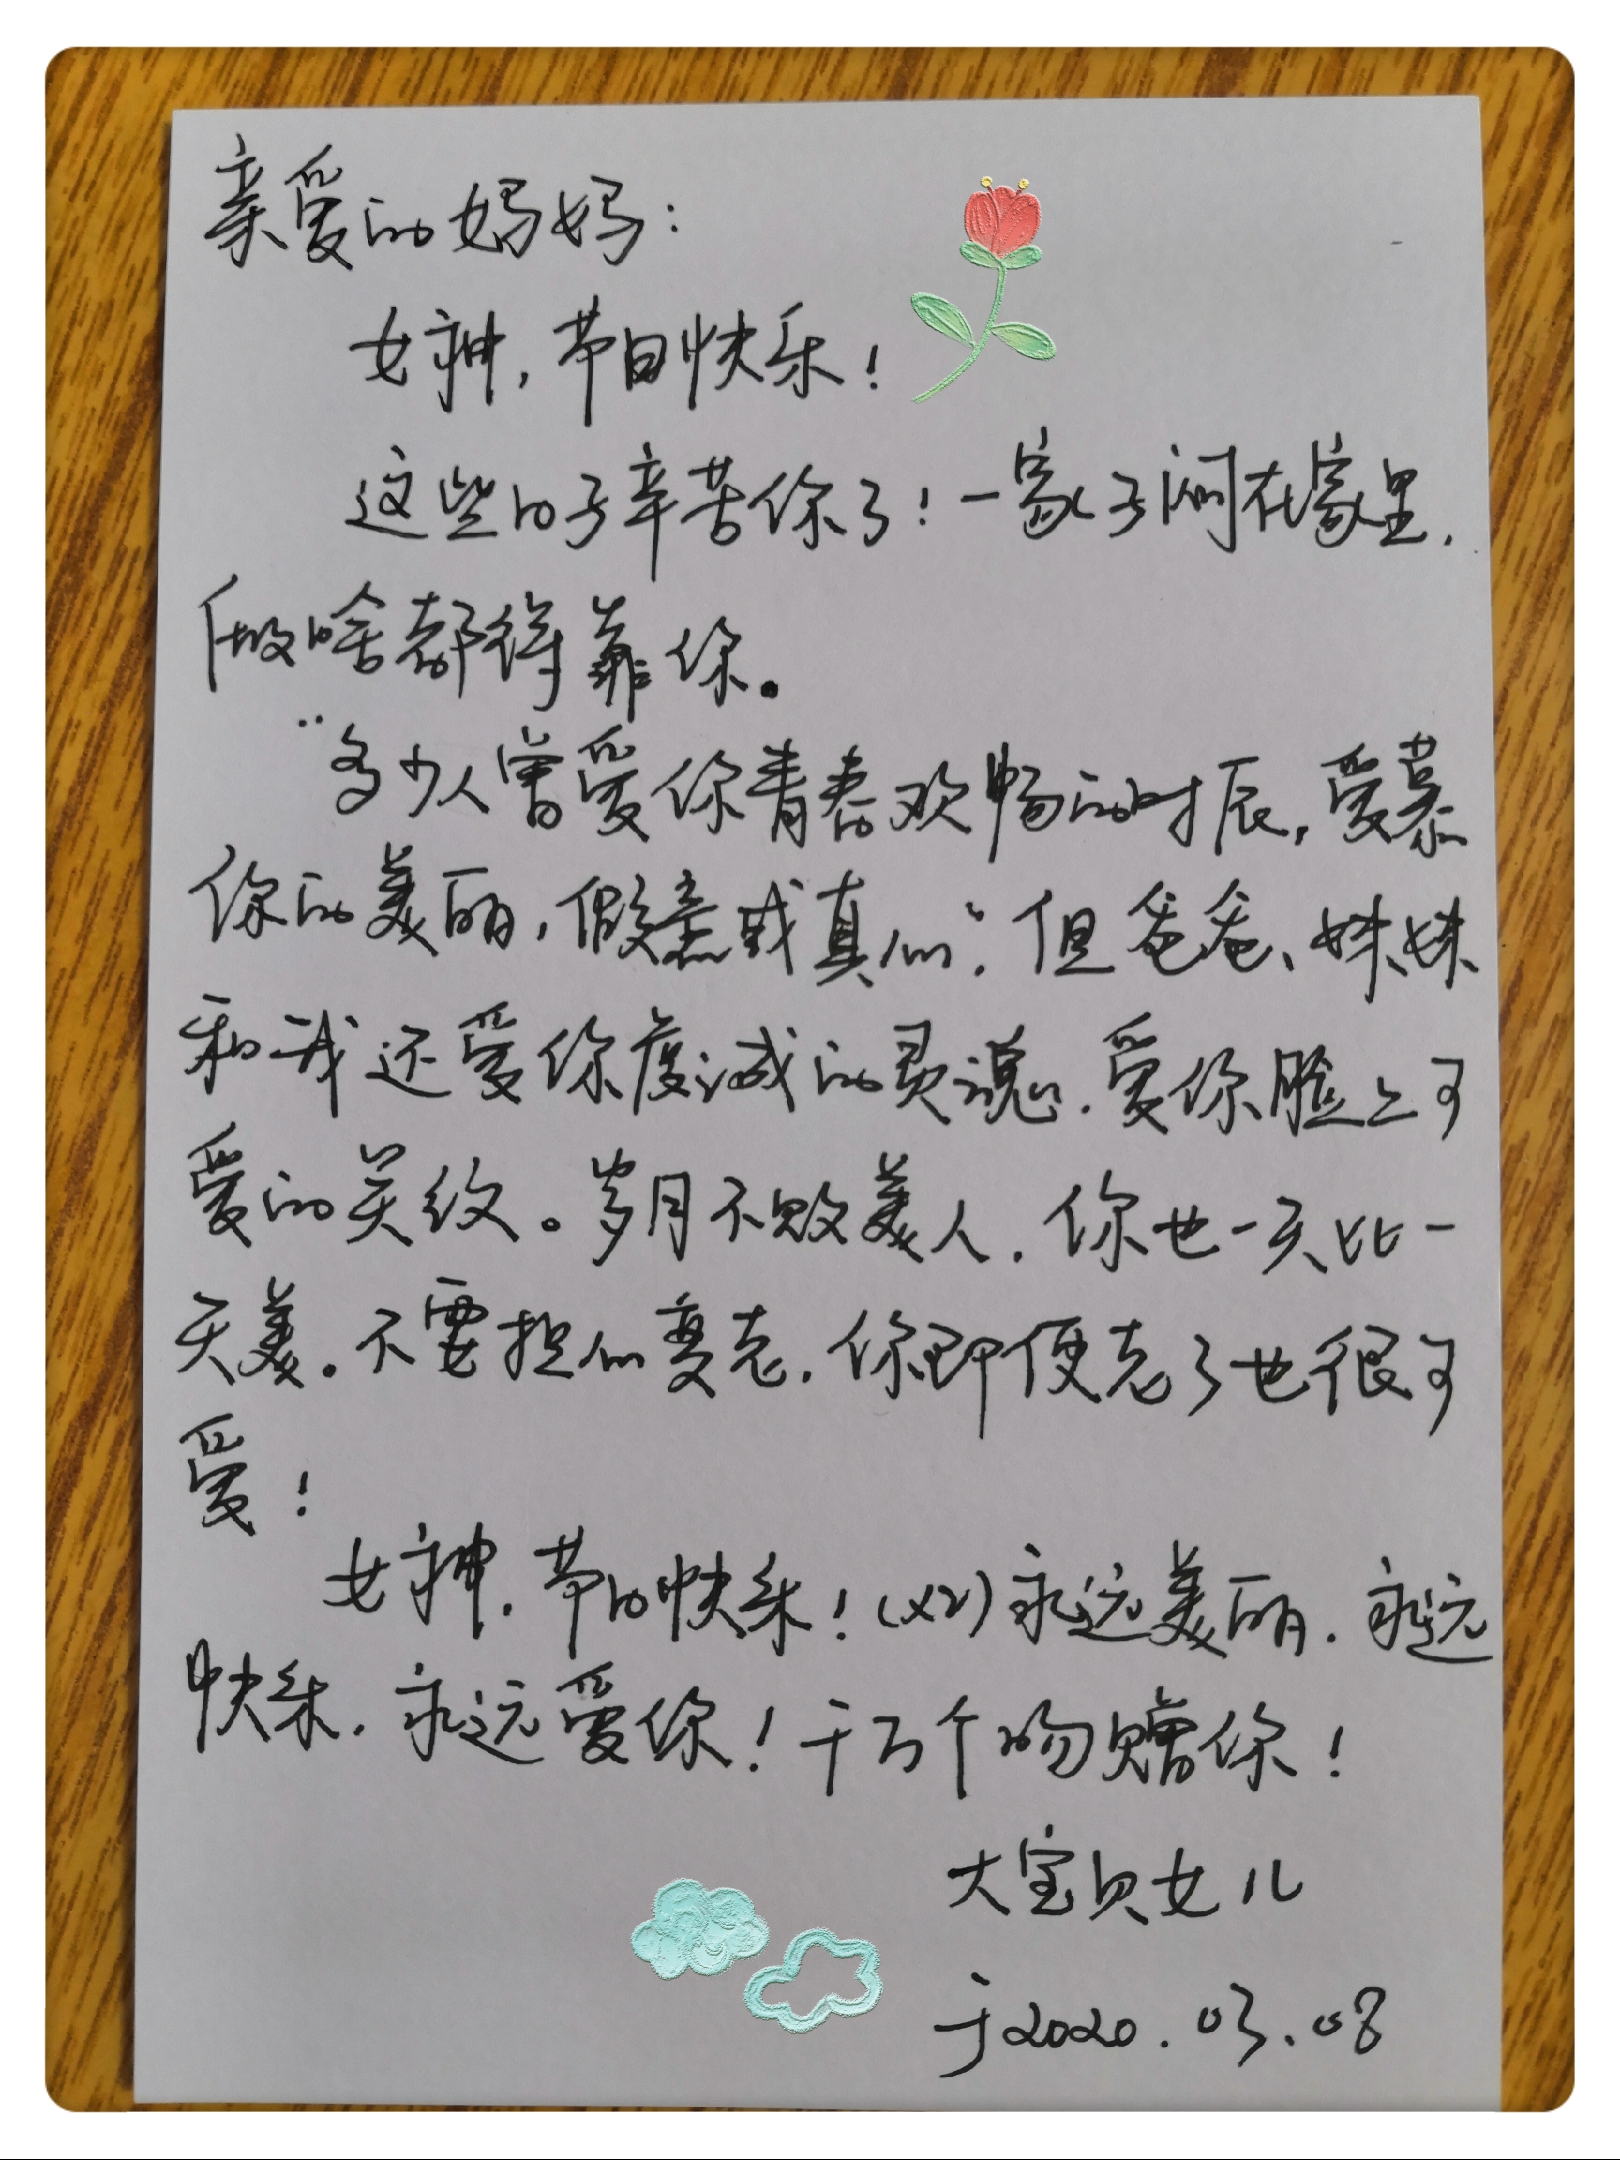 亲爱的妈妈：
女神，节日快乐！
这些日子辛苦你了！一家子闷在家里，
做啥都得靠你。
“多少人曾爱你青春欢畅的时辰，爱慕
你的美丽，假意或真心”，但爸爸、妹妹
和我还爱你虔诚的灵魂，爱你脸上可
爱的笑纹。岁月不败美人，你也一天比一
天美。不要担心变老，你即便老了也很可
爱！
女神，节日快乐！(x2)永远美丽，永远
快乐，永远爱你！千万个吻赠你！
大宝贝女儿
于2020.03.08